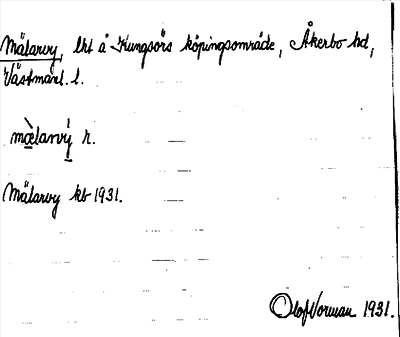 Mälarvy, lht å Kungsörs köpingsområde, Åkerbo hd,
Västmanl. l.
mæ̀larvý r.
Mälarvy kb 1931.
Olof Norman 1931.